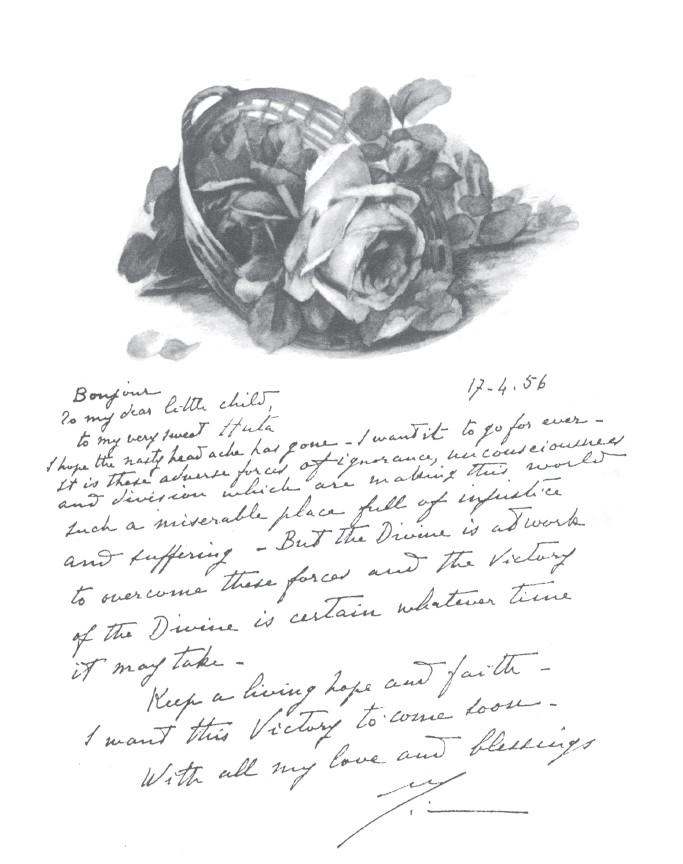 17-4.56
Bonjour
To my dear little child,
to my very sweet Huta
I hope the nasty head ache has gone - I want it to go for ever -
It is these adverse forces of ignorance, unconsciousness
and division which are making this world
such a miserable place full of injustice
and suffering - But the Divine is at work
to overcome these forces and the Victory
of the Divine is certain whatever time
it may take -
Keep a living hope and faith -
I want this Victory to come soon -
With all my love and blessings